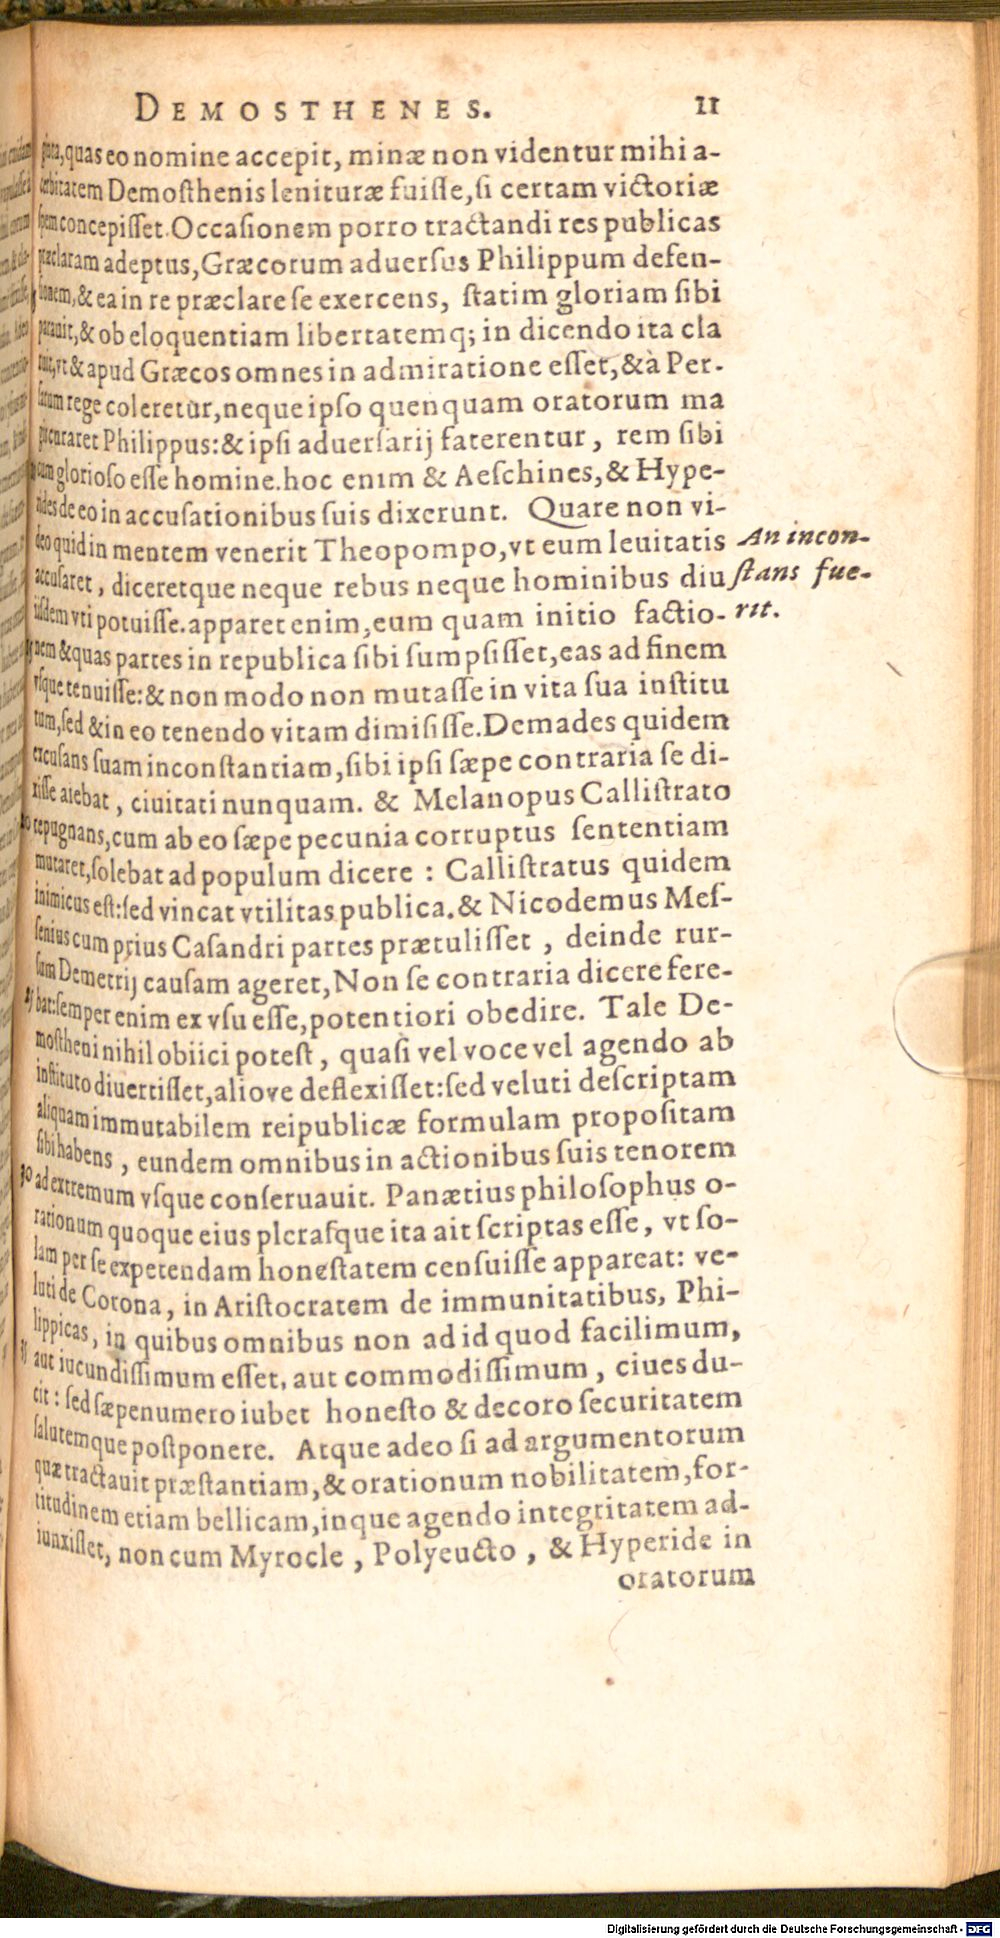 DEMOSTHENES. 11
ginta, quas eo nomine accepit, minæ non videntur mihi a-
cerbitatem Demosthenis lenituræ fuisse, si certam victoriæ
spem concepisset. Occasionem porro tractandi res publicas
præclaram adeptus, Græcorum aduersus Philippum defen-
sionem, & ea in re præclare se exercens, statim gloriam sibi
parauit, & ob eloquentiam libertatemq; in dicendo ita cla
ruit, vt & apud Græcos omnes in admiratione esset, & à Per-
sarum rege coleretur, neque ipso quenquam oratorum ma
gis curaret Philippus: & ipsi aduersarij faterentur, rem sibi
cum glorioso esse homine. hoc enim & Aeschines, & Hype-
rides de eo in accusationibus suis dixerunt. Quare non vi-
deo quid in mentem venerit Theopompo, vt eum leuitatis
An incon-
accusaret, diceretque neque rebus neque hominibus diu
stans fue-
iisdem vti potuisse. apparet enim, eum quam initio factio-
rit.
nem & quas partes in republica sibi sumpsisset, eas ad finem
vsque tenuisse: & non modo non mutasse in vita sua institu
tum, sed & in eo tenendo vitam dimisisse. Demades quidem
excusans suam inconstantiam, sibi ipsi sæpe contraria se di-
xisse aiebat, ciuitati nunquam. & Melanopus Callistrato
repugnans, cum ab eo sæpe pecunia corruptus sententiam
mutaret, solebat ad populum dicere : Callistratus quidem
inimicus est: sed vincat vtilitas publica. & Nicodemus Mes-
senius cum prius Casandri partes prætulisset, deinde rur-
sum Demetrij causam ageret, Non se contraria dicere fere-
25 bat: semper enim ex vsu esse, potentiori obedire. Tale De-
mostheni nihil obiici potest, quasi vel voce vel agendo ab
instituto diuertisset, aliove deflexisset: sed veluti descriptam
aliquam immutabilem reipublicæ formulam propositam
sibi habens, eundem omnibus in actionibus suis tenorem
30 ad extremum vsque conseruauit. Panætius philosophus o-
rationum quoque eius plerasque ita ait scriptas esse, vt so-
lam per se expetendam honestatem censuisse appareat: ve-
luti de Corona, in Aristocratem de immunitatibus, Phi-
lippicas, in quibus omnibus non ad id quod facilimum,
35 aut iucundissimum esset, aut commodissimum, ciues du-
cit : sed sæpenumero iubet honesto & decoro securitatem
salutemque postponere. Atque adeo si ad argumentorum
quæ tractauit præstantiam, & orationum nobilitatem, for-
titudinem etiam bellicam, inque agendo integritatem ad-
iunxisset, non cum Myrocle, Polyeucto, & Hyperide in
oratorum
Digitalisierung gefördert durch die Deutsche Forschungsgemeinschaft - DFG